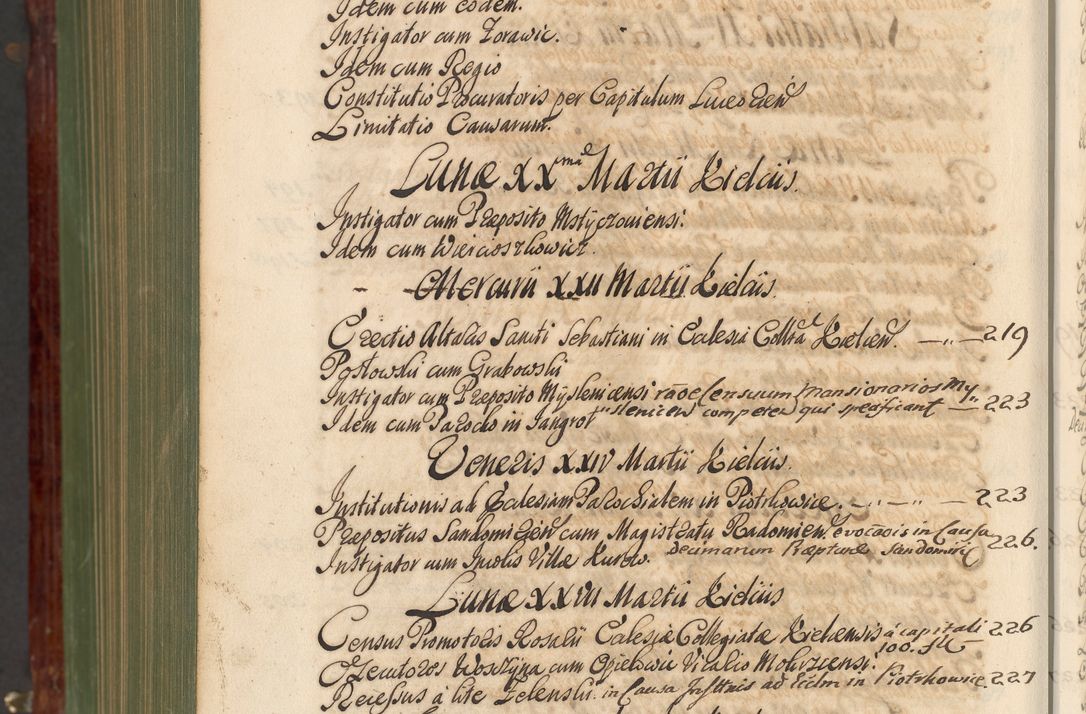 Idem cum eodem.
Instigator cum Zorawic.
Idem cum Regio
Constitutio Procuratoris per Capitulum
Limitatio Causarum.
Lunæ XXma Martii Kielciis.
Instigator cum Præposito Mstyczoviensi.
Idem cum Wiercioszkowicz.
Mercurii XXII Martii Kielciis.
Erectio Altaris Sancti Sebastiani in Eccelsia Collra Kielcen. — „ — 219
Posłowski cum Grabowski
Instigator cum Præposito Myslenicensi raõe Censuum Mansionarios My„
Idem cum Parocho in Jangrot „slenicen competen qui spedificant — 223
Veneris XXIV Martii Kielciis.
Institutionis ad Ecclesiam Parochialem in Piotrkowice. — „ — „ — 223
Præpositus Sandomirien cum Magistratu Radomien. evocaois in Causa
Decimarum Raptur Sandomir 226.
Instigator cum Incolis Villæ Kurow.
Lunæ XXVII Martii Kielciis
Census Promotoris Rosarii Ecclesiæ Collegiatæ Kielcensis á capitali 226
100. fl
Executores Woszzyna cum Opielowic Vicario Mokrzcensi.
Recessus á lite Zelenski. in Causa Insttnis ad Eccлm in Piotrkowice. 227